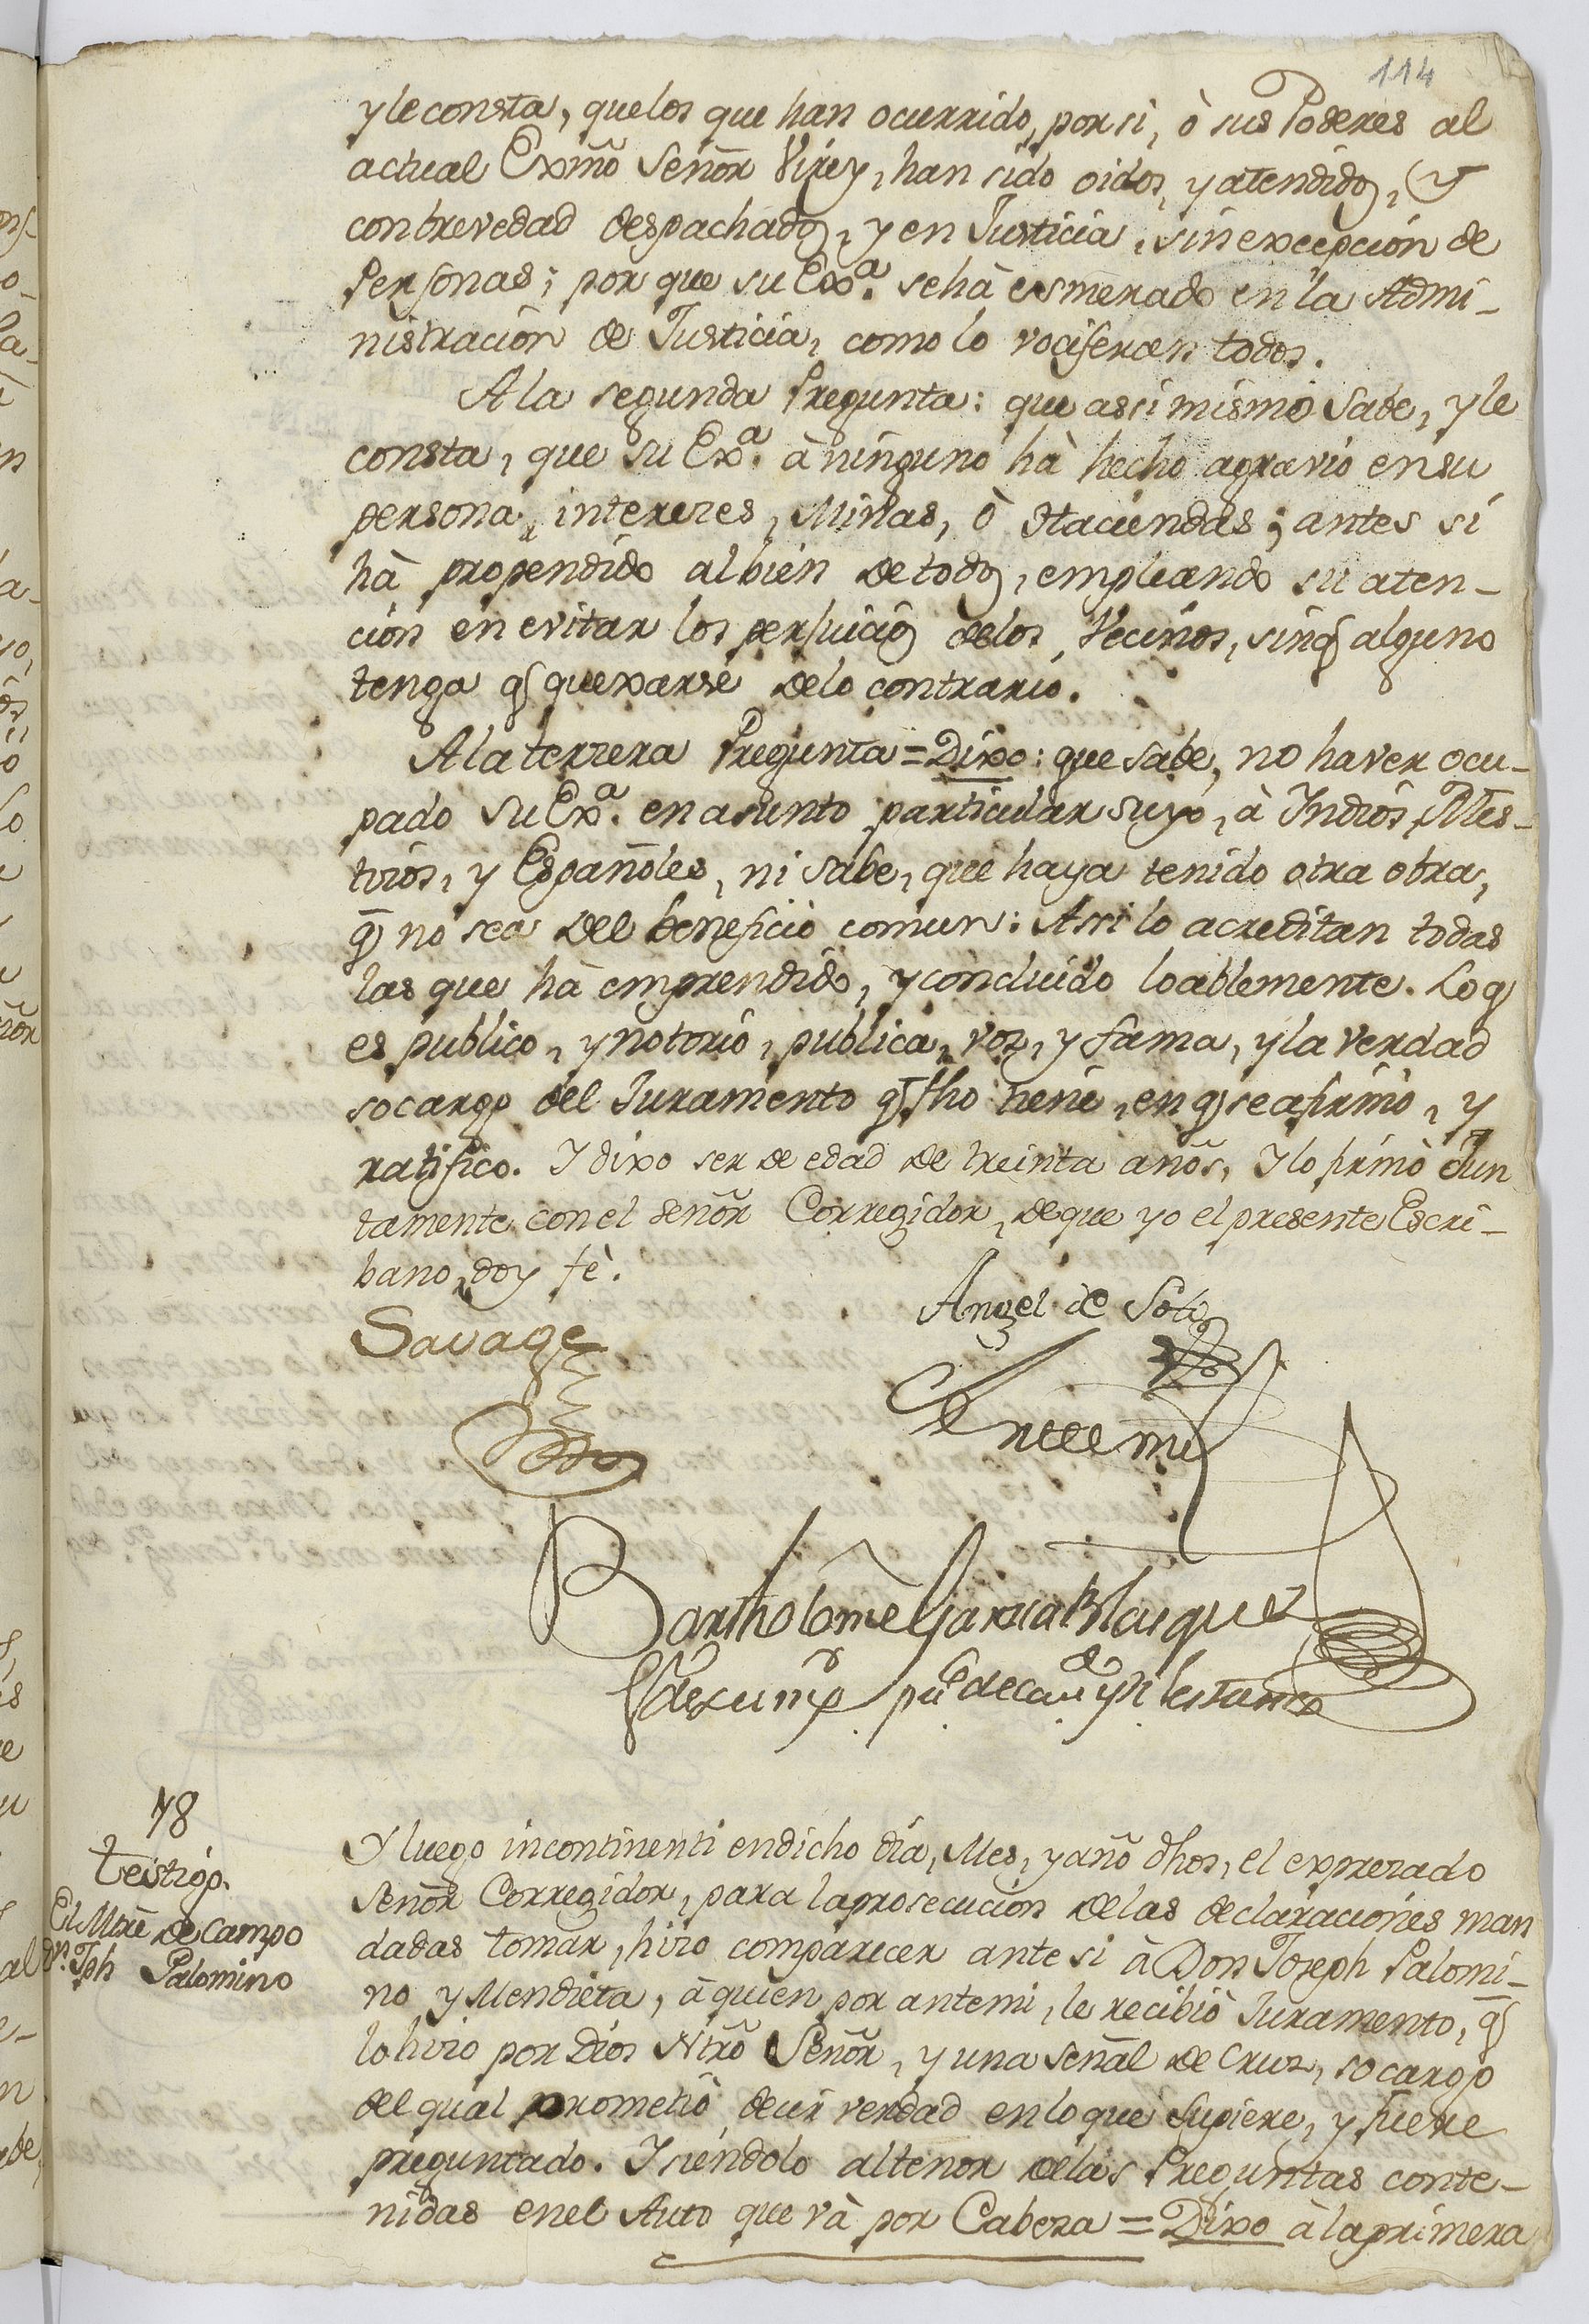 114
y le consta, que los que han ocurrido, por si, ò sus Poderes al
actual Exmõ Señor Virey, han sido oidos, y atendidos, Y
con brevedad despachados, y en Justicia, sin excepcion de
Personas; por que su Exª. se hà esmerado en la Admi-
nistracion de Justicia, como lo vociferan todos.
A la segunda Pregunta: que assi mismo Sabe, y le
consta, que su Exª. à ninguno hà hecho agravio en su
persona, intereses, Minas, ò Haciendas; antes si
hà propendido al bien de todos, empleando su aten-
cion en evitar los perjuicios de los Vecinos, sin q̃ alguno
tenga q̃ quexarse de lo contrario.
A la terzera Pregunta = Dixo: que sabe, no haver ocu-
pado su Exª. en asunto particular suyo, à Indios, Mes-
tizos, y Españoles, ni sabe, que haya tenido otra obra,
q̃ no sea del beneficio comun: Assi lo acreditan todas
las que hà emprendido, y concluido loablemente. Lo q̃
es publico, y notorio, publica, voz, y fama, y la verdad
so cargo del Juramento q̃ fho tiene, en q̃ se afirmó, y
ratifico. Y dixo ser de edad de treinta años, Y lo firmò Jun
tamente con el señor Corregidor, de que yo el presente Escri-
bano, doy fè.
Angel de Soto
Savage
Ante mi
Bartholome Garzia Blasquez
pu.co de Cav.do
78
Testigo.
El Mtrē de Campo
Dn. Jph Palomino
Y luego incontinenti en dicho dia, Mes, y año dhos, el expresado
Señor Corregidor, para la prosecucion de las declaraciones man
dadas tomar, hizo comparecer ante si à Don Joseph Palomi-
no y Mendieta, à quien por ante mi, le recibiò Juramento, q̃
lo hizo por Dios Ntrõ Señor, y una señal de Cruz, so cargo
del qual prometiò decir verdad en lo que supiere, y fuere
preguntado. Y siendolo al tenor de las Preguntas conte-
nidas en el Auto que và por Cabeza = Dixo à la primera